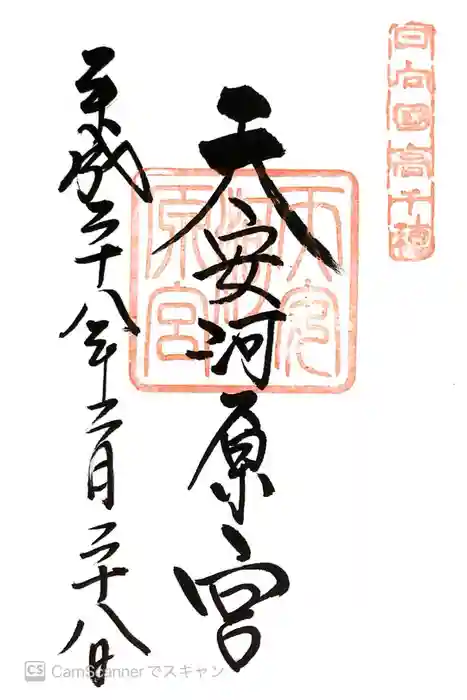 日向國高千穂
天安河原宮
天安河原宮
平成二十八年二月二十八日
CS CamScannerでスキャン